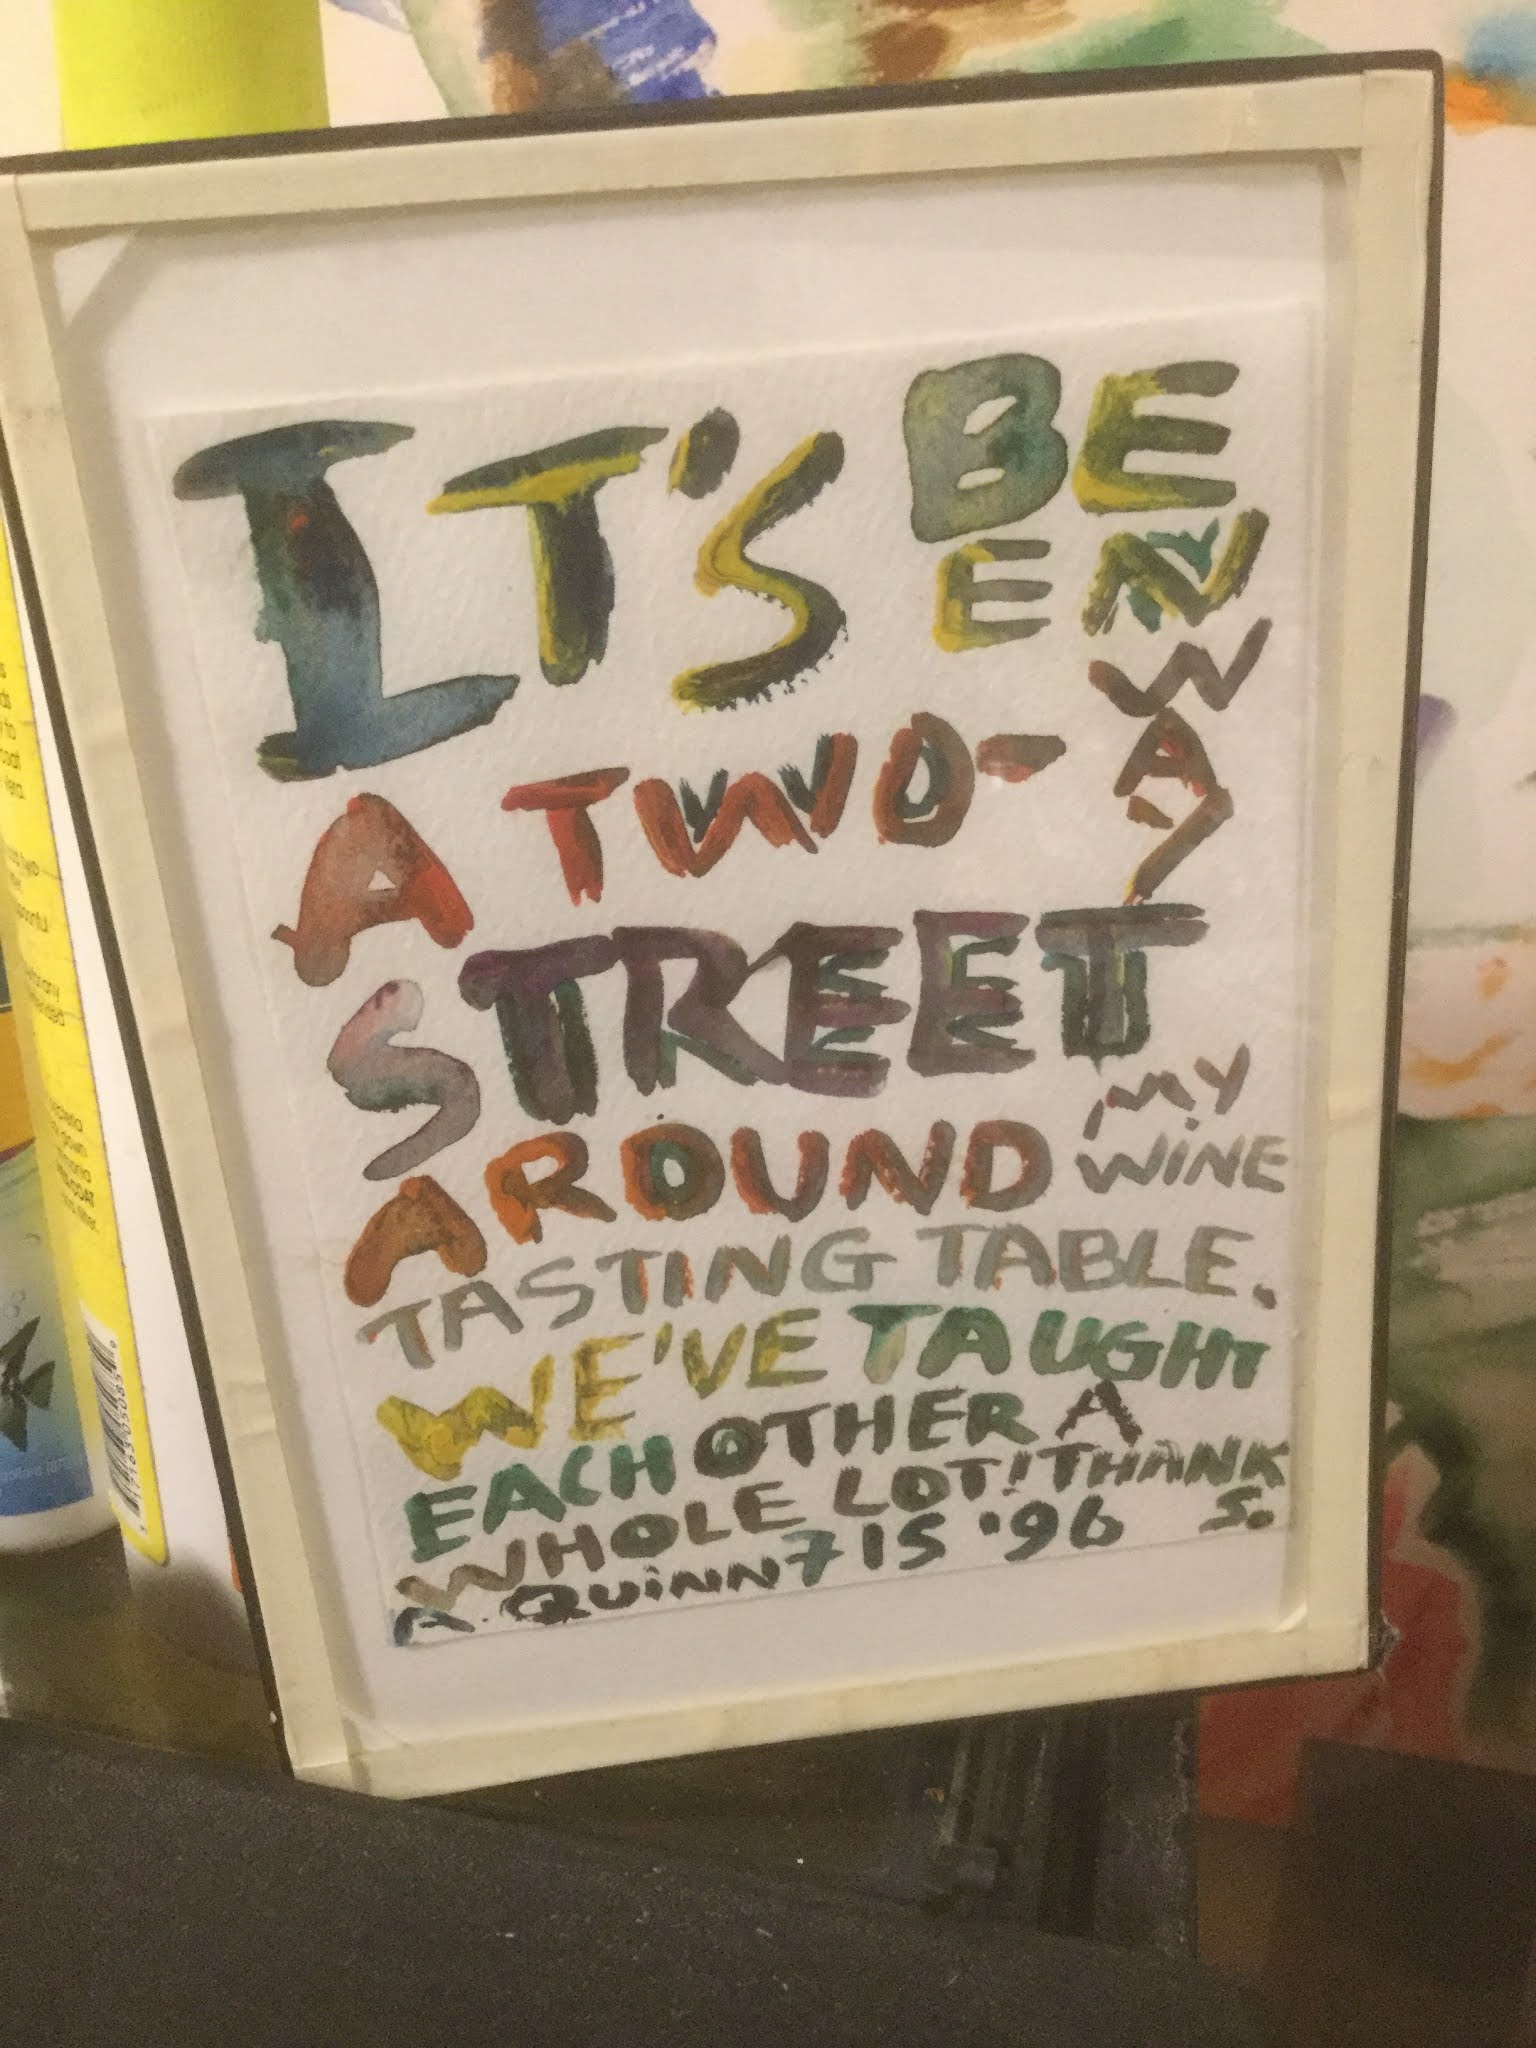 IT'S BE
EN
A TWO-WAY
STREET
AROUND MY
WINE
TASTING TABLE.
WE'VE TAUGHT
EACH OTHER A
WHOLE LOT! THANK
S.
A. QUINN 7 15 '96